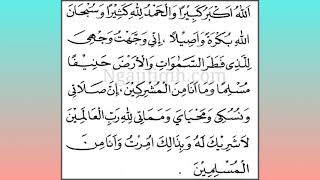 اَللهُ اَكْبَرُ كَبِيْرًا وَالْحَمْدُ لِلّٰهِ كَثِيْرًا وَسُبْحَانَ
اللهِ بُكْرَةً وَاَصِيْلًا . اِنِّى وَجَّهْتُ وَجْهِيَ
لِلَّذِى فَطَرَ السَّمٰوَاتِ وَالْاَرْضَ حَنِيْفًا
مُسْلِمًا وَمَا اَنَا مِنَ الْمُشْرِكِيْنَ . اِنَّ صَلَاتِى
وَنُسُكِى وَمَحْيَايَ وَمَمَاتِى لِلّٰهِ رَبِّ الْعَالَمِيْنَ
لَا شَرِيْكَ لَهُ وَبِذَالِكَ اُمِرْتُ وَاَنَا مِنَ
الْمُسْلِمِيْنَ .